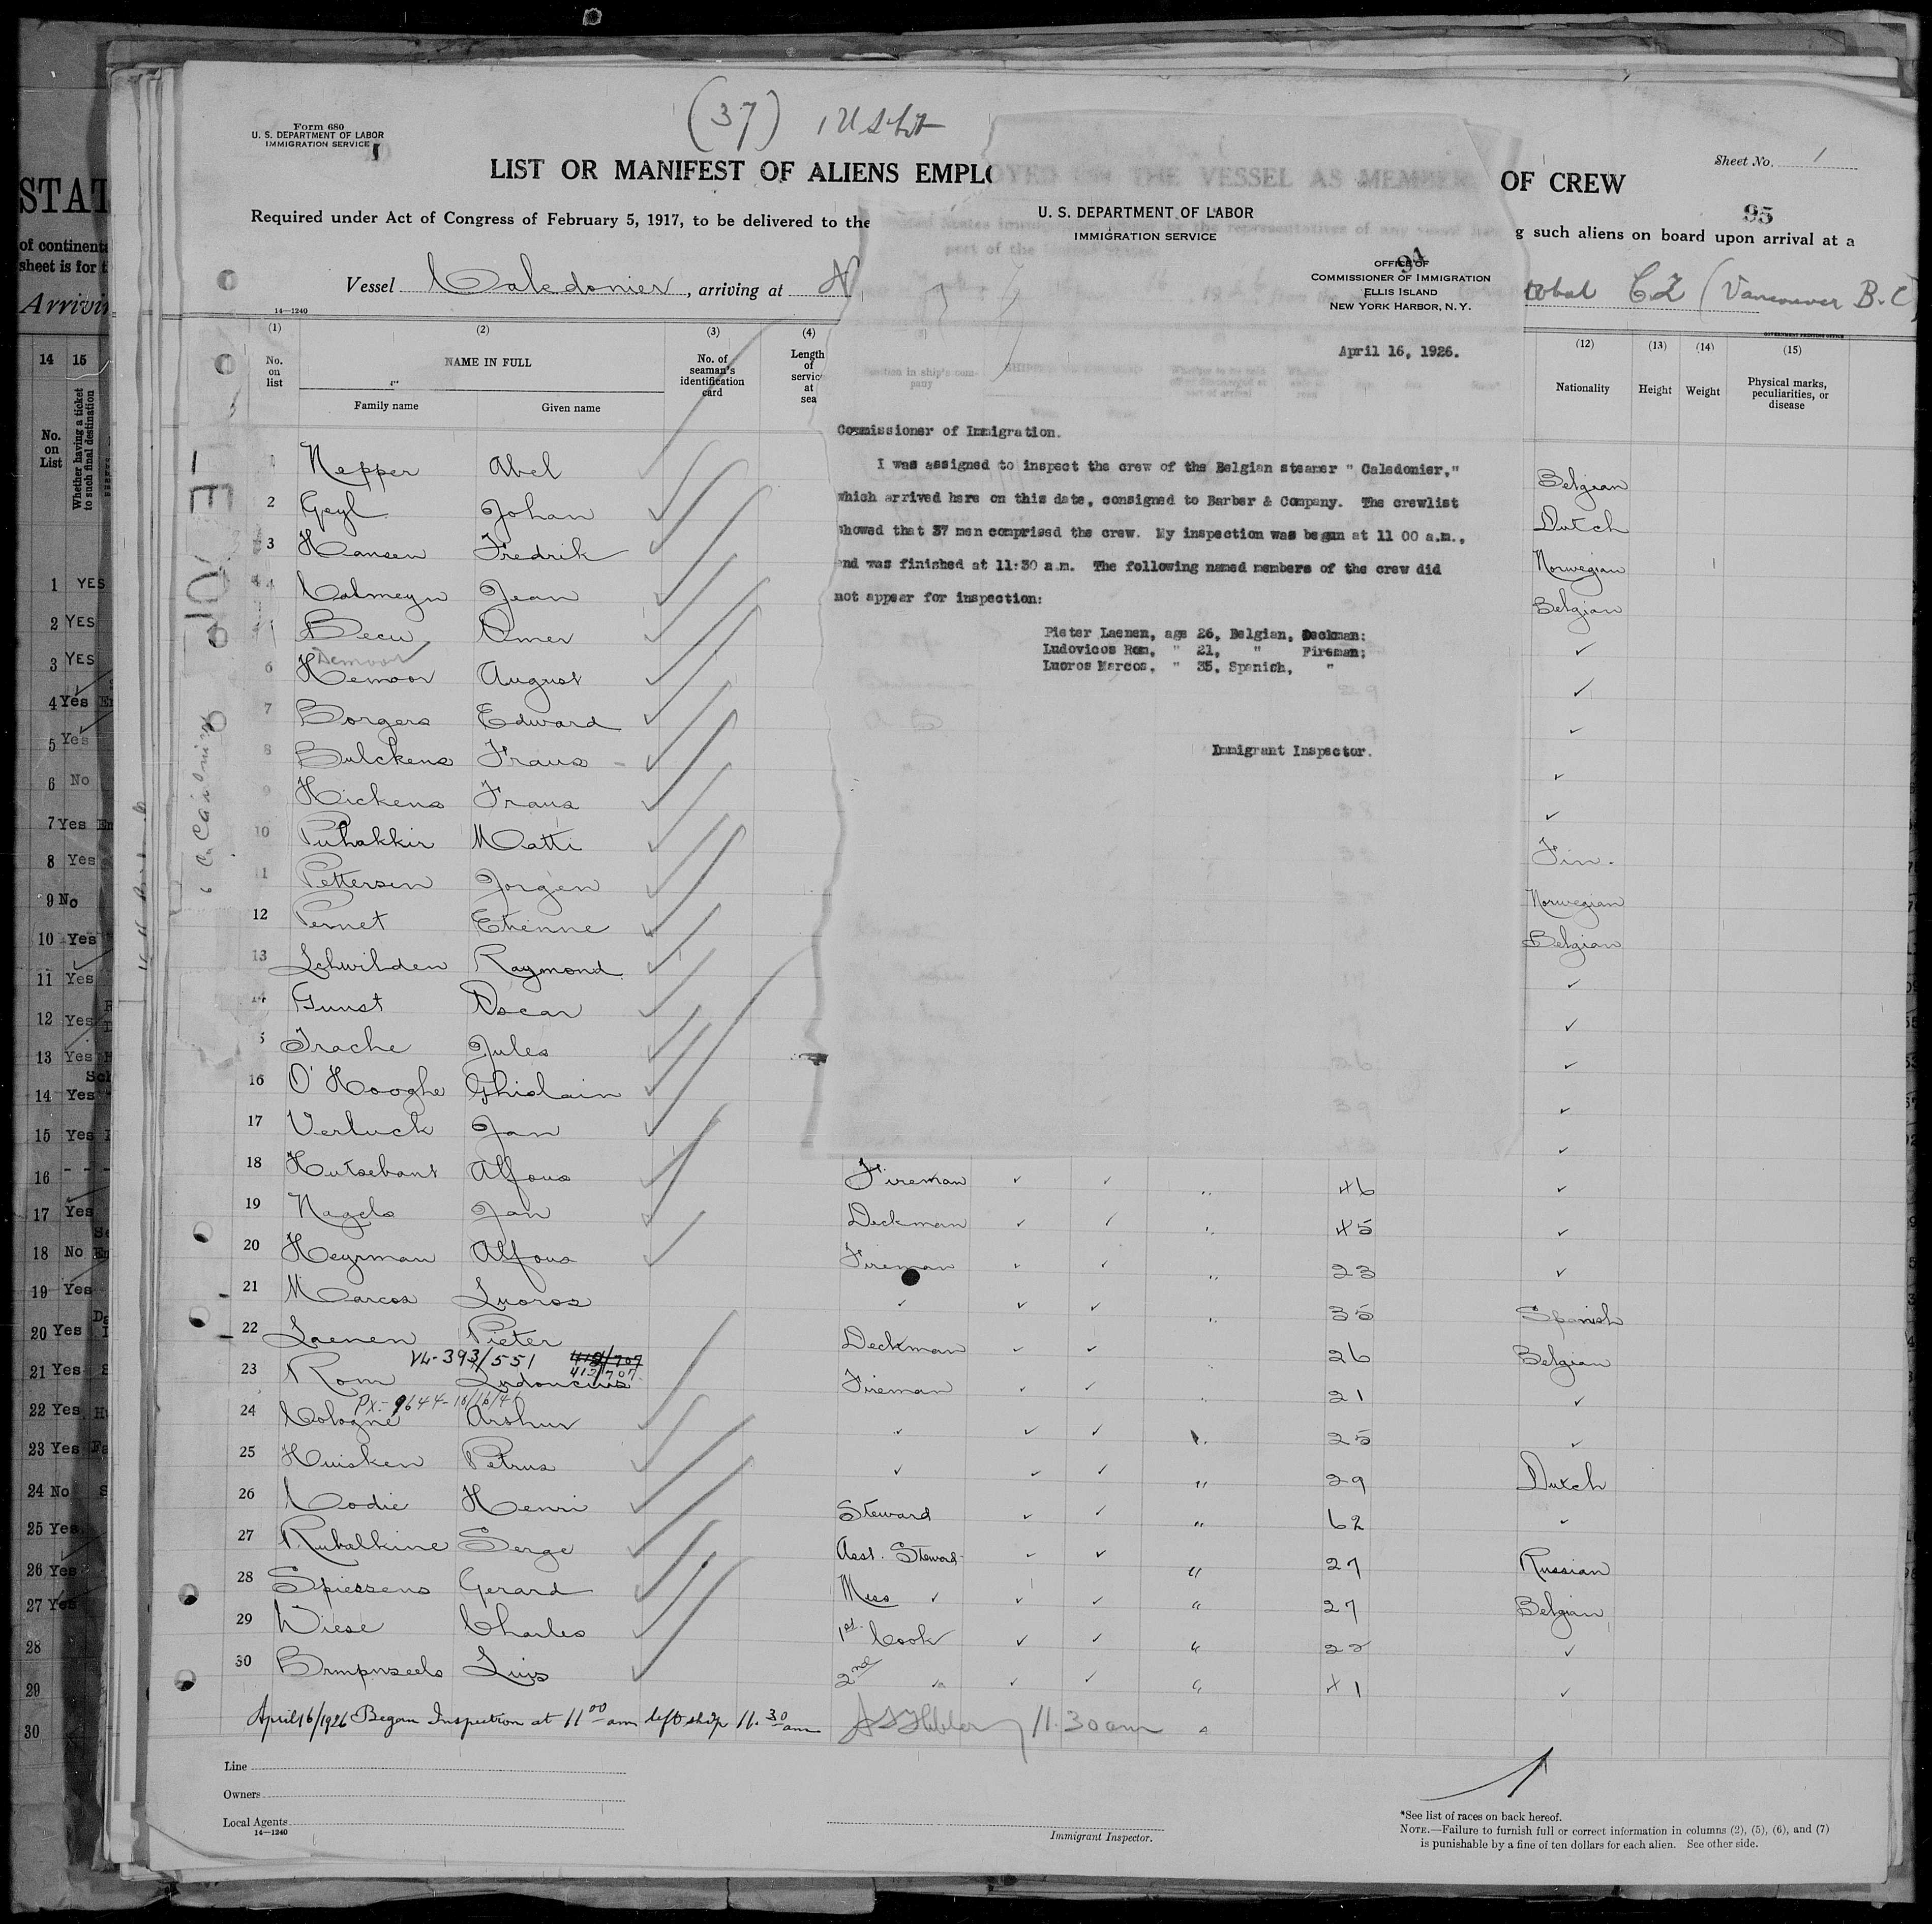 (37) 1 US
Form 680
U. S. DEPARTMENT OF LABOR
IMMIGRATION SERVICE
Sheet No. 1
LIST OR MANIFEST OF ALIENS EMPLOYED ON THE VESSEL AS MEMBERS OF CREW
95
Required under Act of Congress of February 5, 1917, to be delivered to the
g such aliens on board upon arrival at a
part of the United States
Vessel Caledonier, arriving at N
tobal C.Z (Vancouver B.C)
14—1240
GOVERNMENT PRINTING OFFICE
(1) (2) (3) (4) (12) (13) (14) (15)
No. on list
NAME IN FULL
Family name Given name
No. of seaman's identification card
Length of service at sea
Nationality Height Weight Physical marks, peculiarities, or disease
U. S. DEPARTMENT OF LABOR
IMMIGRATION SERVICE
94
OFFICE OF
COMMISSIONER OF IMMIGRATION
ELLIS ISLAND
NEW YORK HARBOR, N. Y.
April 16, 1926.
Commissioner of Immigration.
I was assigned to inspect the crew of the Belgian steamer " Caledonier,"
which arrived here on this date, consigned to Barber & Company. The crewlist
showed that 37 men comprised the crew. My inspection was begun at 11 00 a.m.,
and was finished at 11:30 a.m. The following named members of the crew did
not appear for inspection:
Pieter Laenen, age 26, Belgian, Deckman;
Ludovicos Rom, " 21, " Fireman;
Luoros Marcos, " 35, Spanich, "
Immigrant Inspector.
1 Nepper Abel Belgian
2 Geyl Johan Dutch
3 Hansen Fredrik Norwegian
4 Calmeyn Jean Belgian
Becu Omer ✓
Demoor
6 Hemoor August ✓
7 Borgers Edward ✓
8 Bulckens Frans ✓
9 Hickens Frans ✓
10 Puhakkir Matti Fin.
11 Pettersen Jorgen Norwegian
12 Pernet Etienne Belgian
13 Schwilden Raymond ✓
14 Gunst Oscar ✓
5 Trache Jules ✓
16 O'Hooghe Ghislain ✓
17 Verluck Jan ✓
18 Hutsebant Alfons Fireman ✓ ✓ " 46 ✓
19 Nagels Jan Deckman ✓ ✓ " 45 ✓
20 Heyrman Alfons Fireman ✓ ✓ " 23 ✓
21 Marcos Luoros ✓ ✓ ✓ " 35 Spanish
22 Laenen Pieter Deckman ✓ ✓ 26 Belgian
VL-393/551 413/707
413/707
23 Rom Ludoncius Fireman ✓ ✓ 21 ✓
PX-9644-10/16/46
24 Cologne Arthur ✓ ✓ ✓ " 25 ✓
25 Huisken Petrus ✓ ✓ ✓ " 29 Dutch
26 Codie Henri Steward ✓ ✓ " 62 ✓
27 Rubalkine Serge Asst. Steward ✓ ✓ " 27 Russian
28 Spiessens Gerard Mess ✓ ✓ ✓ " 27 Belgian
29 Wiese Charles 1st Cook ✓ ✓ " 22 ✓
30 Brmpnseels Luis 2nd " ✓ ✓ " 41 ✓
April 16/1926 Began Inspection at 11 00 am left ship 11.30 am
11.30am
Line
Owners
Local Agents
14—1240
Immigrant Inspector.
*See list of races on back hereof.
NOTE.—Failure to furnish full or correct information in columns (2), (5), (6), and (7)
is punishable by a fine of ten dollars for each alien. See other side.
STAT
of continenta
sheet is for t
Arrivin
14 15
No. on List
Whether having a ticket to such final destination
1 YES
2 YES
3 YES
4 Yes
5 Yes
6 No
7 Yes
8 Yes
9 No
10 Yes
11 Yes
12 Yes
13 Yes
14 Yes
15 Yes
16 - -
17 Yes
18 No
19 Yes
20 Yes
21 Yes
22 Yes
23 Yes
24 No
25 Yes
26 Yes
27 Yes
28
29
30